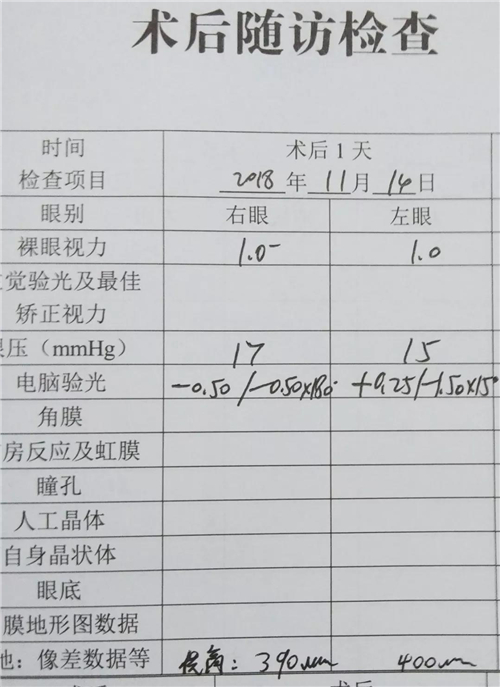 术后随访检查
时间 术后1天
检查项目 2018年11月14日
眼别 右眼 左眼
裸眼视力 1.0- 1.0
觉验光及最佳
矫正视力
压（mmHg） 17 15
电脑验光 -0.50/-0.50×180° +0.25/-1.50×15°
角膜
房反应及虹膜
瞳孔
人工晶体
自身晶状体
眼底
膜地形图数据
他：像差数据等 390um 400um
术后